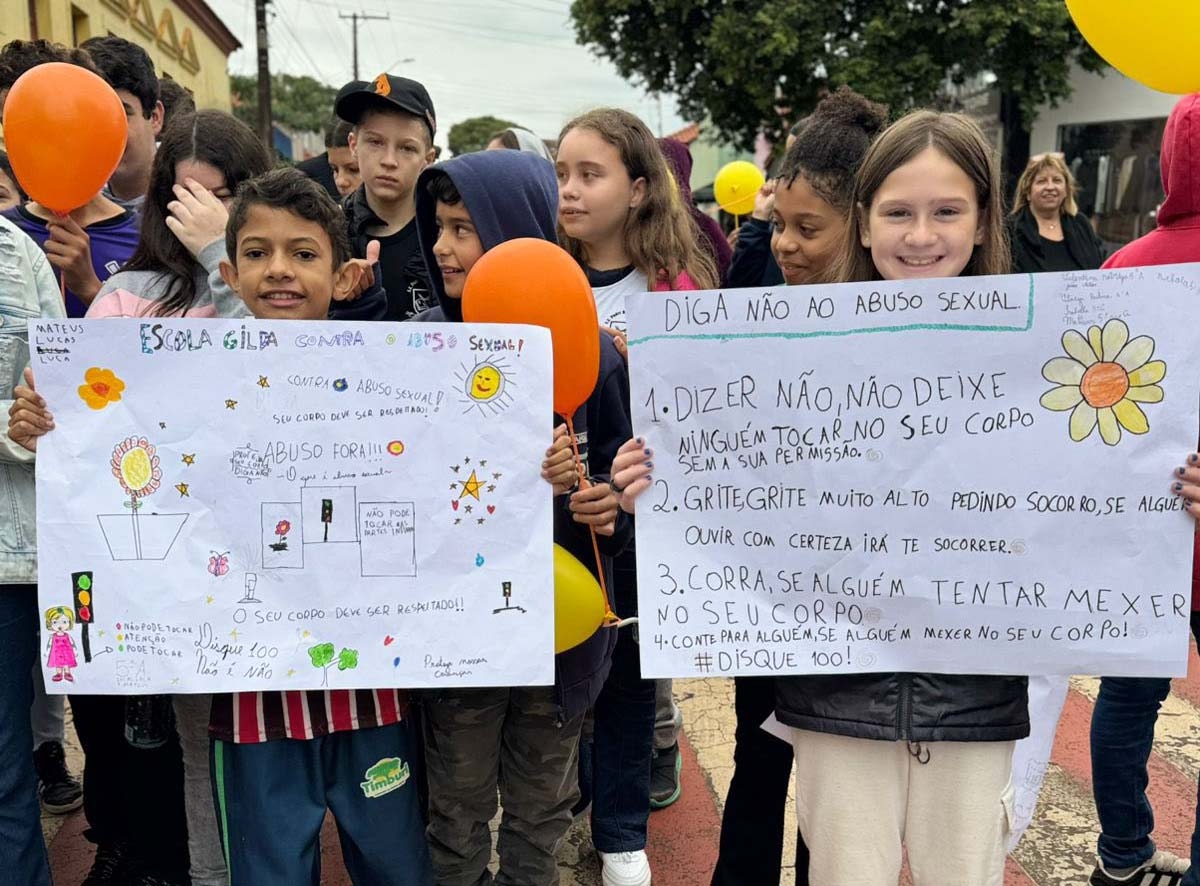 MATEUS
LUCAS
LUCA
ESCOLA GILDA CONTRA O ABUSO SEXUAL!
CONTRA O ABUSO SEXUAL!
SEU CORPO DEVE SER RESPEITADO!
ABUSO FORA!!!
O que é abuso sexual
NÃO PODE
TOCAR NAS
PARTES
O SEU CORPO DEVE SER RESPEITADO!!
NÃO PODE TOCAR
ATENÇÃO
PODE TOCAR
5ºA
Disque 100
Não é Não
Proteja nossas
crianças
Timburi
DIGA NÃO AO ABUSO SEXUAL.
1. DIZER NÃO, NÃO DEIXE
NINGUÉM TOCAR NO SEU CORPO
SEM A SUA PERMISSÃO.
2. GRITE, GRITE MUITO ALTO PEDINDO SOCORRO, SE ALGUÉM
OUVIR COM CERTEZA IRÁ TE SOCORRER.
3. CORRA, SE ALGUÉM TENTAR MEXER
NO SEU CORPO
4. CONTE PARA ALGUÉM, SE ALGUÉM MEXER NO SEU CORPO!
#DISQUE 100!